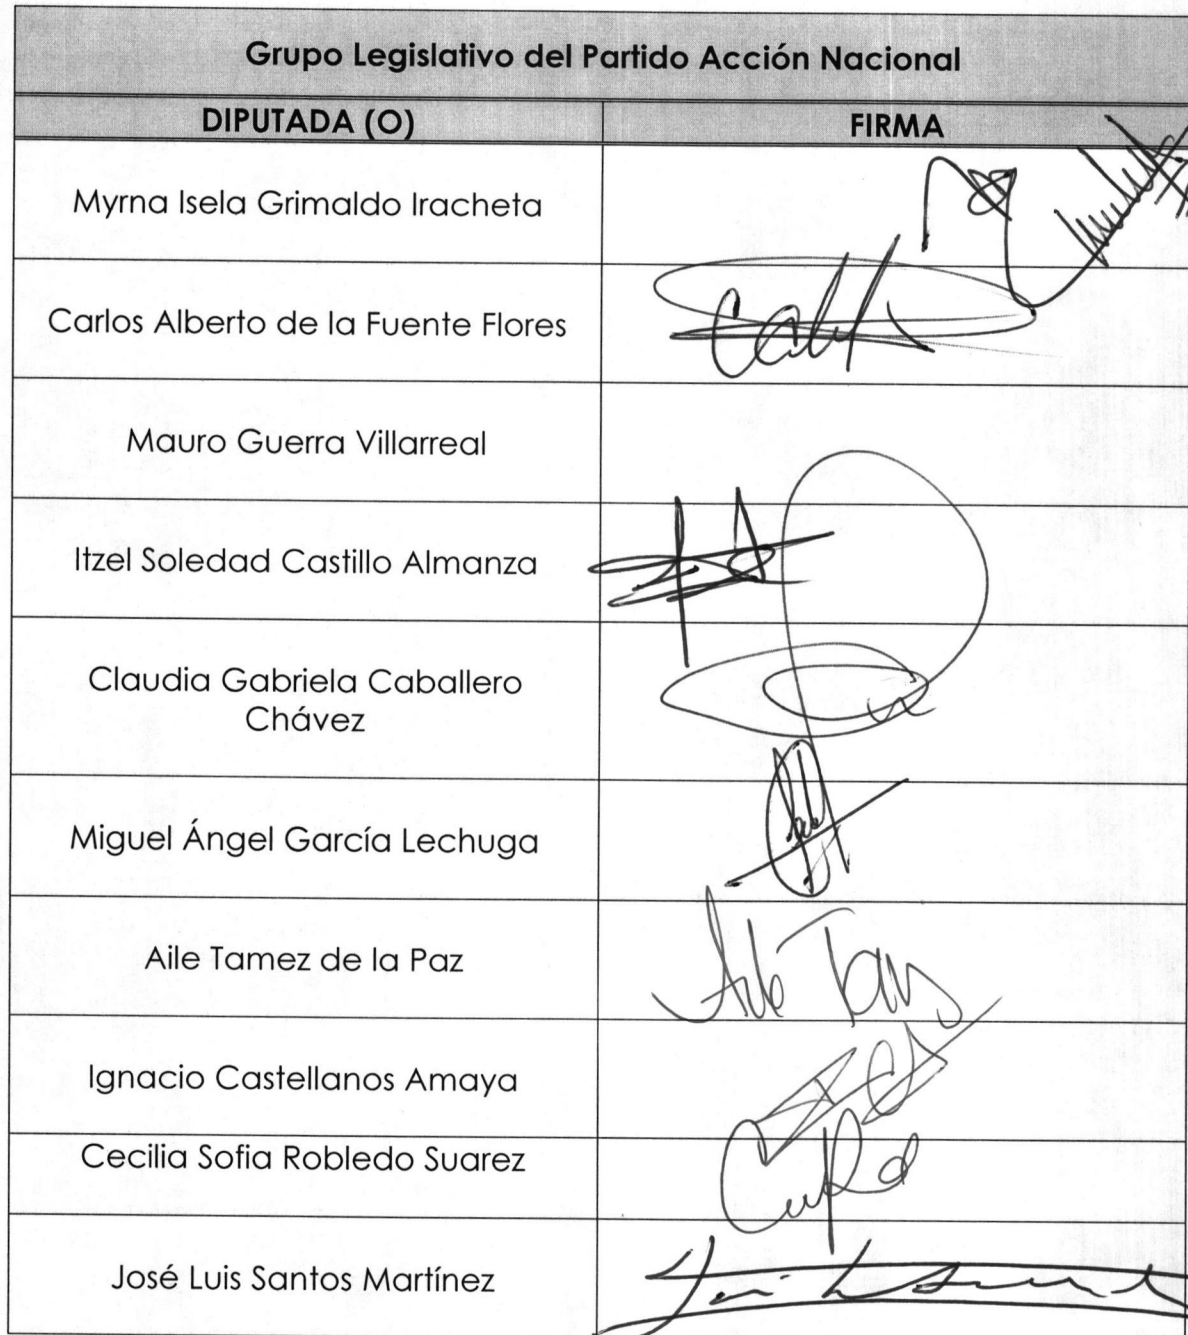 Grupo Legislativo del Partido Acción Nacional
DIPUTADA (O) FIRMA
Myrna Isela Grimaldo Iracheta
Carlos Alberto de la Fuente Flores
Mauro Guerra Villarreal
Itzel Soledad Castillo Almanza
Claudia Gabriela Caballero
Chávez
Miguel Ángel García Lechuga
Aile Tamez de la Paz
Ignacio Castellanos Amaya
Cecilia Sofia Robledo Suarez
José Luis Santos Martínez